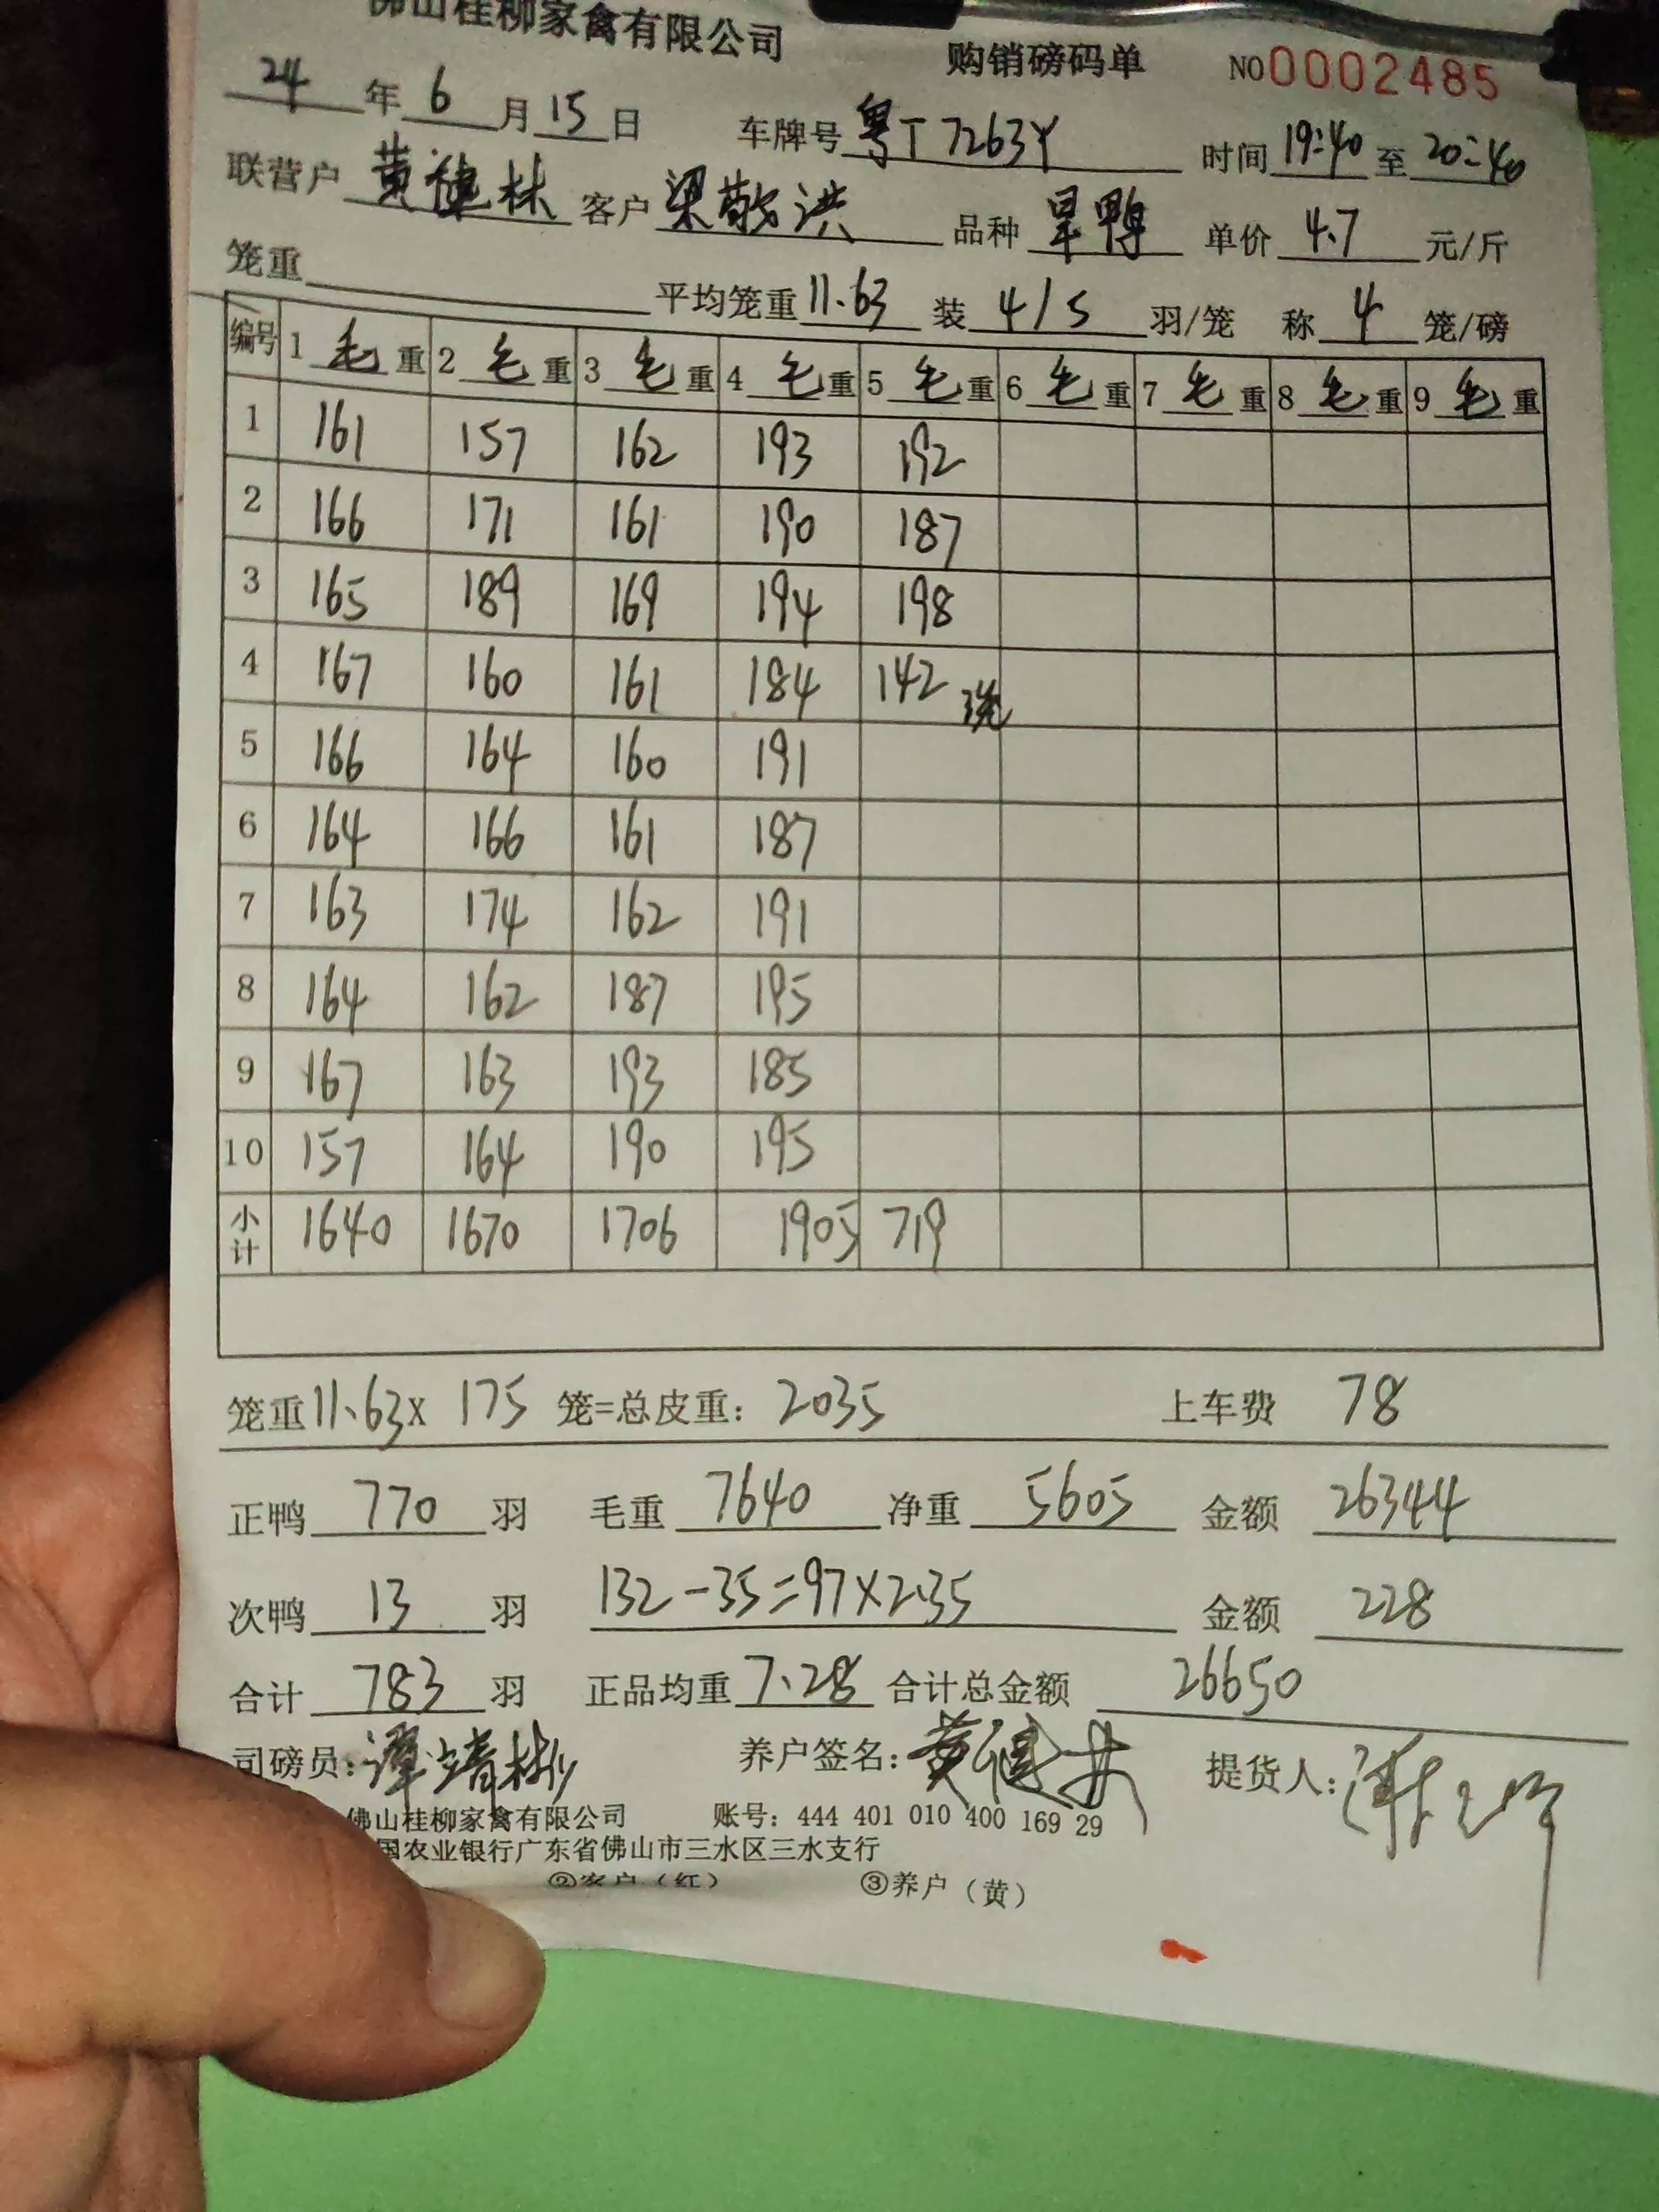 佛山桂柳家禽有限公司 购销磅码单 NO0002485
24 年 6 月 15 日 车牌号 粤T7263Y 时间 19:40 至 20:40
联营户 黄健林 客户 梁敬洪 品种 旱鸭 单价 4.7 元/斤
笼重 平均笼重 11.63 装 4/5 羽/笼 称 4 笼/磅
编号 1 毛 重 2 毛 重 3 毛 重 4 毛 重 5 毛 重 6 毛 重 7 毛 重 8 毛 重 9 毛 重
1 161 157 162 193 192
2 166 171 161 190 187
3 165 189 169 194 198
4 167 160 161 184 142
5 166 164 160 191
6 164 166 161 187
7 163 174 162 191
8 164 162 187 195
9 167 163 193 185
10 157 164 190 195
小计 1640 1670 1706 1905 719
笼重 11.63 x 175 笼=总皮重: 2035 上车费 78
正鸭 770 羽 毛重 7640 净重 5605 金额 26344
次鸭 13 羽 132-35=97×2.35 金额 228
合计 783 羽 正品均重 7.28 合计总金额 26650
司磅员: 谭靖彬 养户签名: 提货人:
佛山桂柳家禽有限公司 账号: 444 401 010 400 169 29
国农业银行广东省佛山市三水区三水支行
②客户(红) ③养户(黄)